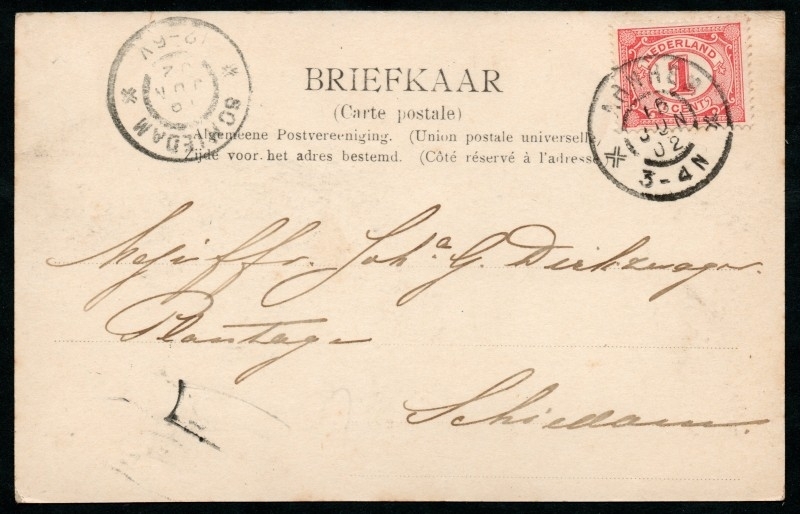 BRIEFKAAR
(Carte postale)
Algemeene Postvereeniging. (Union postale universell
Zijde voor het adres bestemd. (Côté réservé à l'adresse
NEDERLAND
1
CENT
ARNHEM
JUN
02
3-4N
SCHIEDAM
12-6V
Mejuffr. Joh.a G. Dirkzwager.
Plantage
Schiedam.